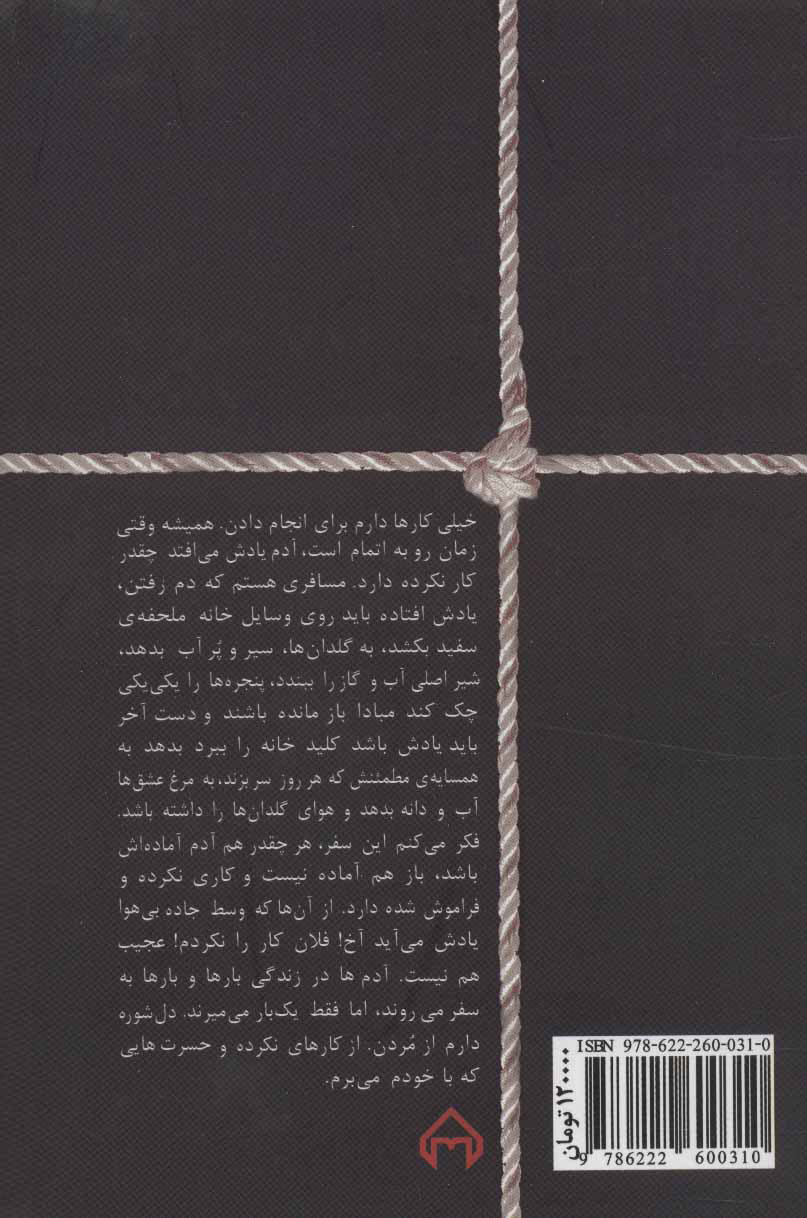 خیلی کارها دارم برای انجام دادن. همیشه وقتی
زمان رو به اتمام است، آدم یادش می‌افتد چقدر
کار نکرده دارد. مسافری هستم که دم رفتن،
یادش افتاده باید روی وسایل خانه ملحفه‌ی
سفید بکشد، به گلدان‌ها، سیر و پُر آب بدهد،
شیر اصلی آب و گاز را ببندد، پنجره‌ها را یکی‌یکی
چک کند مبادا باز مانده باشند و دست آخر
باید یادش باشد کلید خانه را ببرد بدهد به
همسایه‌ی مطمئنش که هر روز سر بزند، به مرغ عشق‌ها
آب و دانه بدهد و هوای گلدان‌ها را داشته باشد.
فکر می‌کنم این سفر، هر چقدر هم آدم آماده‌اش
باشد، باز هم آماده نیست و کاری نکرده و
فراموش شده دارد. از آن‌ها که وسط جاده بی‌هوا
یادش می‌آید آخ! فلان کار را نکردم! عجیب
هم نیست. آدم ها در زندگی بارها و بارها به
سفر می روند، اما فقط یک‌بار می‌میرند. دل‌شوره
دارم از مُردن. از کارهای نکرده و حسرت هایی
که با خودم می‌برم.
ISBN 978-622-260-031-0
۱۲۰۰۰۰ تومان
9 786222 600310